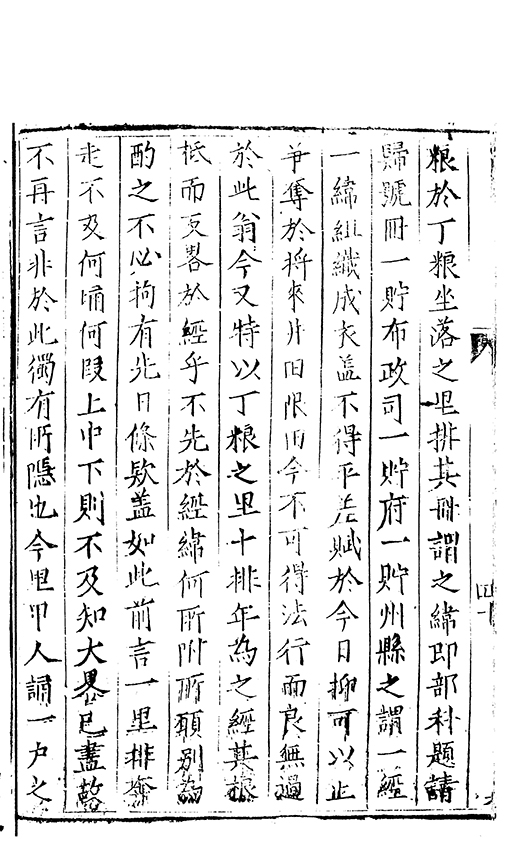 粮於丁粮坐落之里排其冊謂之緯即部科題請
歸號冊一貯布政司一貯府一貯州縣之謂一經
一緯組織成衣盖不得平差賦於今日抑可以止
爭奪於將來片田限田今不可得法行而良無過
於此翁今又特以丁粮之里十排年為之經其粮
柢而反畧於經乎不先於經緯何所附所願别為
酌之不必拘有先日條欵盖如此前言一里排
走不及何 何叚上中下則不及知大畧已盡
不再言非於此獨有所隱也今里甲人 一戶之
四十